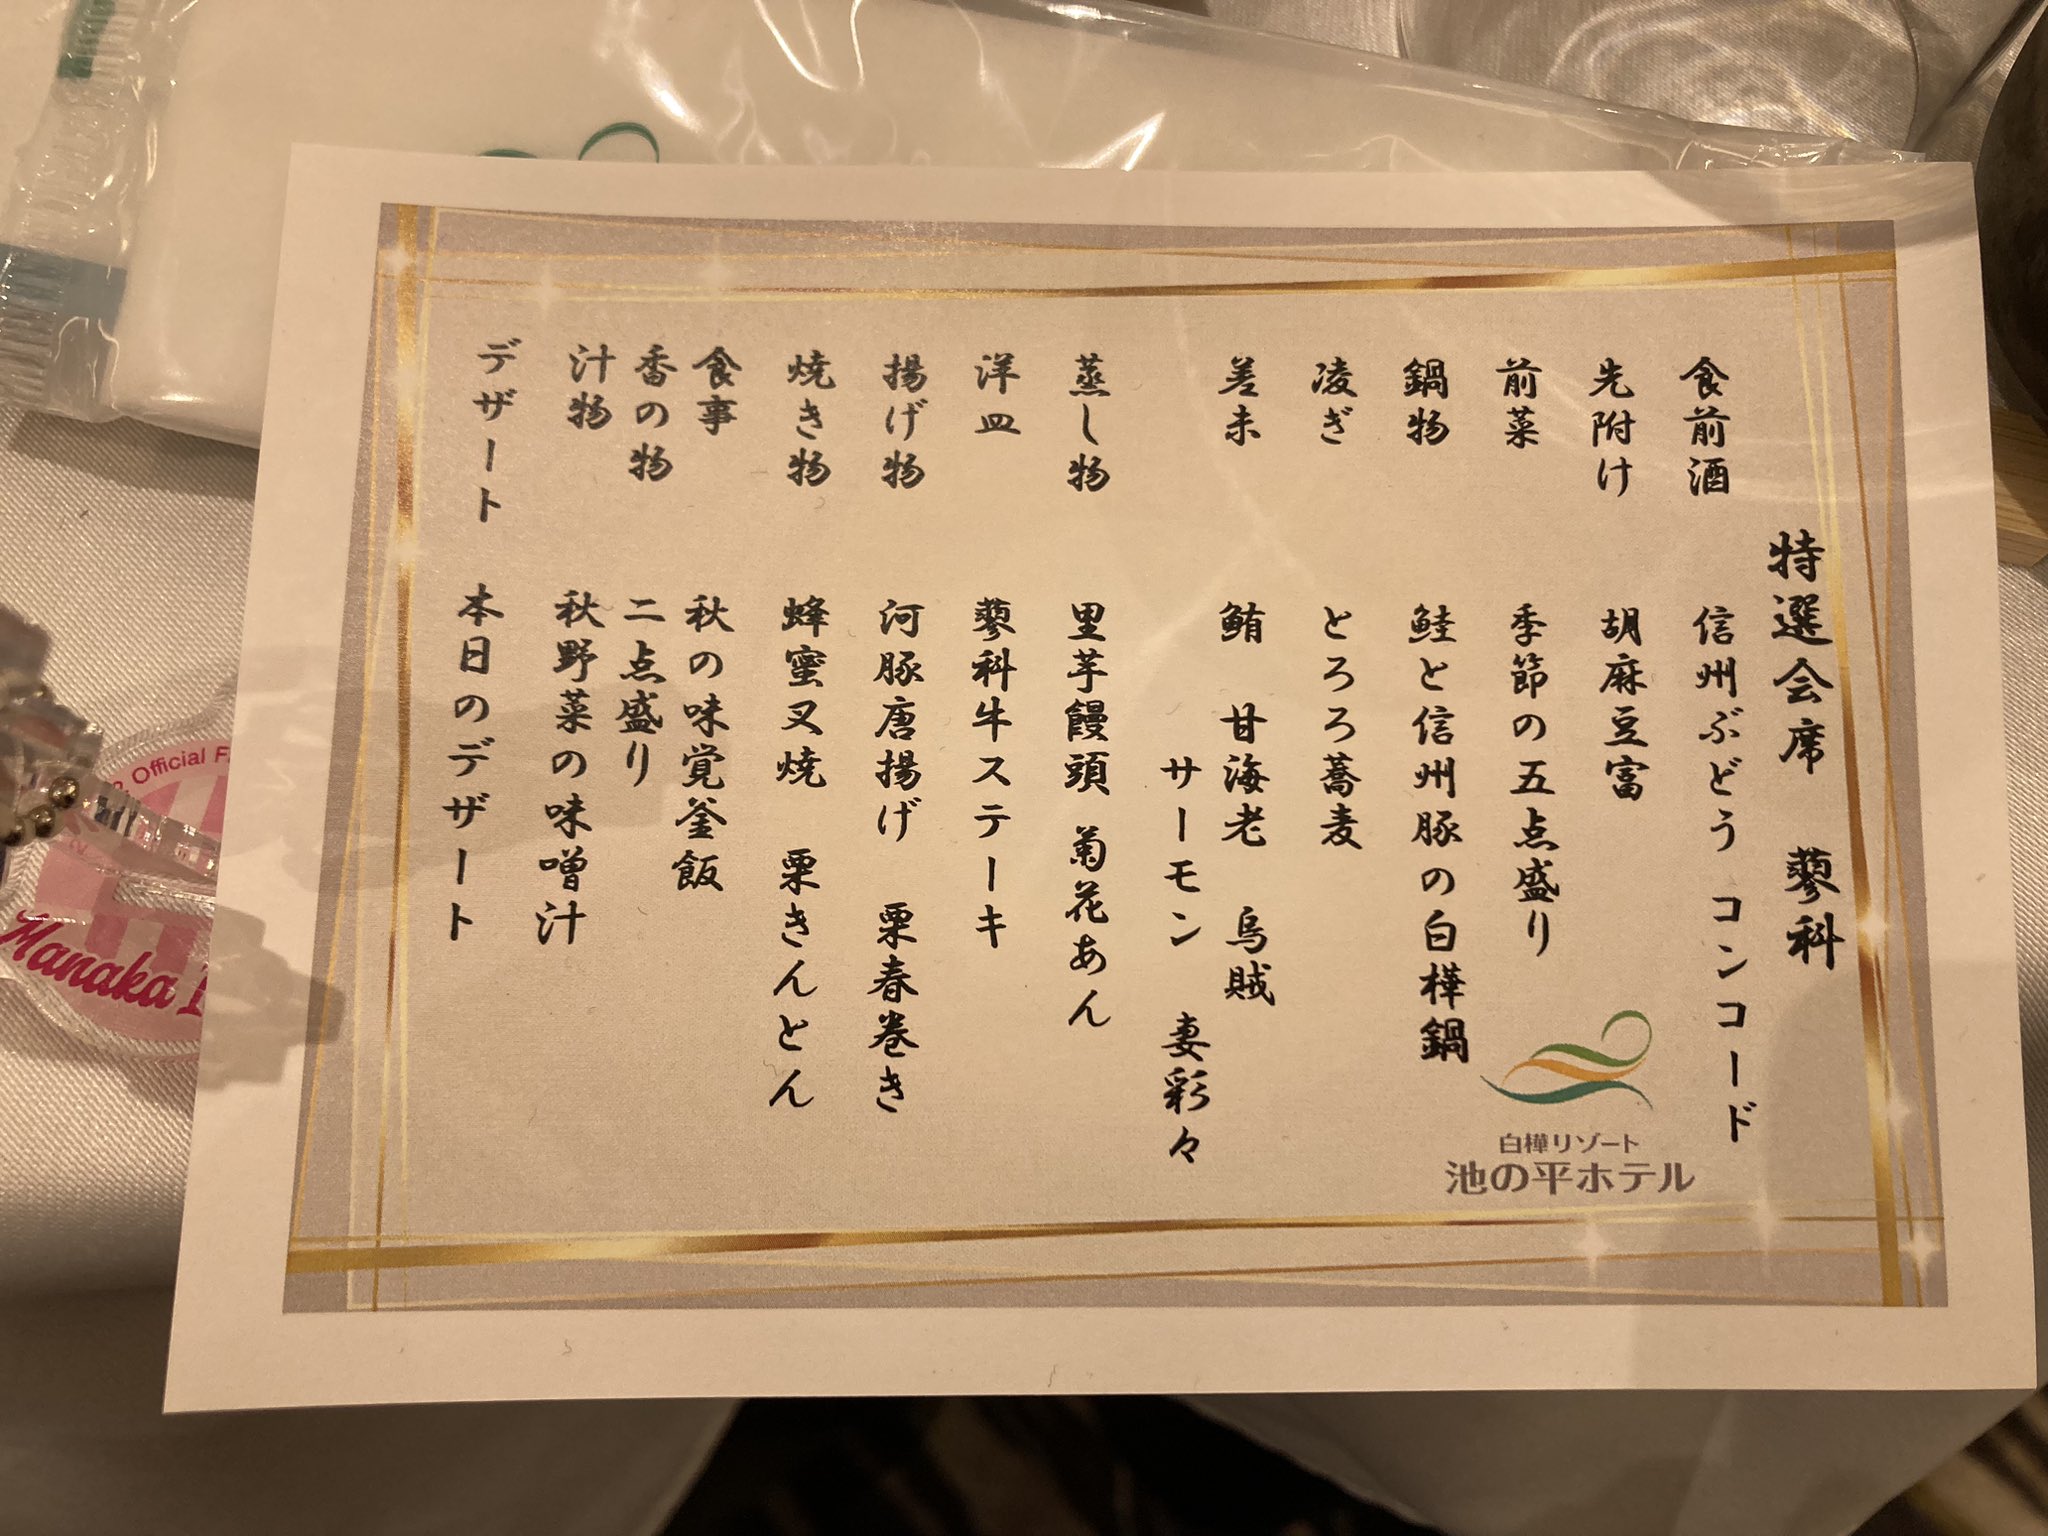 特選会席　蓼科
食前酒　信州ぶどう コンコード
先附け　胡麻豆富
前菜　季節の五点盛り
鍋物　鮭と信州豚の白樺鍋
凌ぎ　とろろ蕎麦
差未　鮪　甘海老　烏賊
サーモン　妻彩々
蒸し物　里芋饅頭 菊花あん
洋皿　蓼科牛ステーキ
揚げ物　河豚唐揚げ　栗春巻き
焼き物　蜂蜜叉焼　栗きんとん
食事　秋の味覚釜飯
香の物　二点盛り
汁物　秋野菜の味噌汁
デザート　本日のデザート
白樺リゾート
池の平ホテル
Official
Manaka